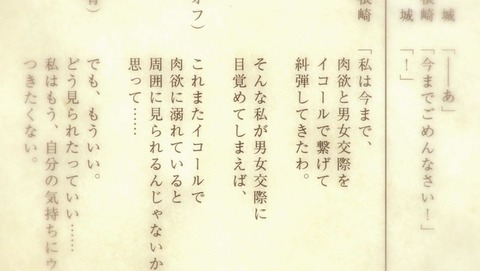 城 「――あ」
根崎 「今までごめんなさい!」
城 「!」
根崎 「私は今まで、
肉欲と男女交際を
イコールで繋げて
糾弾してきたわ。
そんな私が男女交際に
目覚めてしまえば、
オフ)
これまたイコールで
肉欲に溺れていると
周囲に見られるんじゃないか
思って……
でも、もういい。
どう見られたっていい……
私はもう、自分の気持ちにウ
つきたくない。